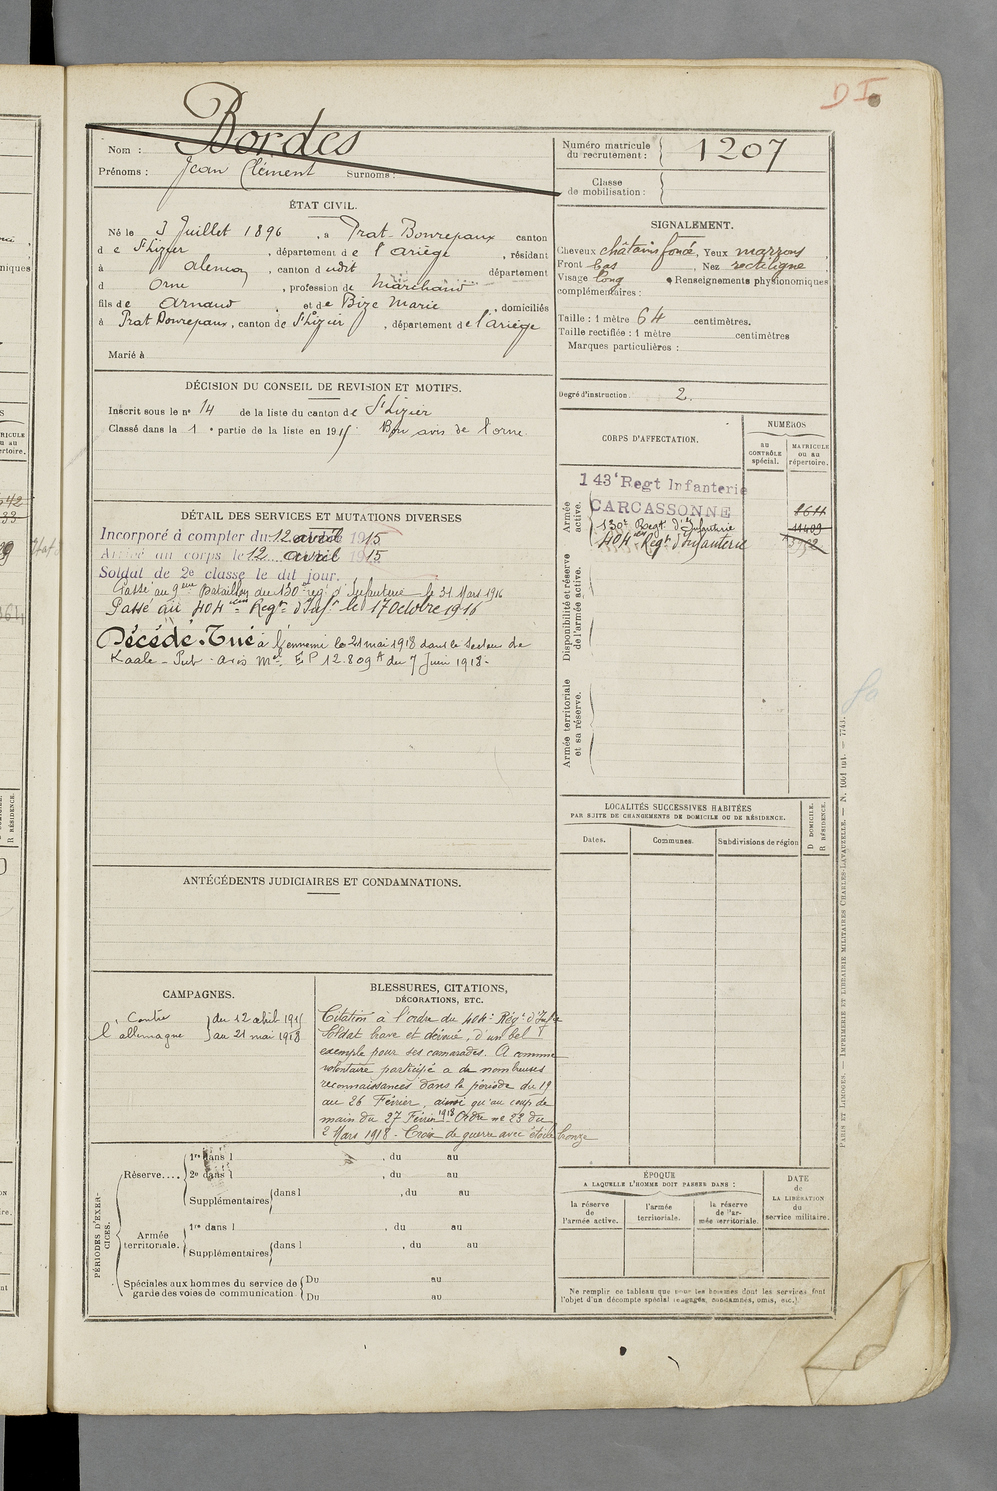 D I
Bordes
Nom :
Prénoms : Jean Clément Surnoms :
Numéro matricule du recrutement : 1207
Classe de mobilisation :
ÉTAT CIVIL.
Né le 3 Juillet 1896, à Prat-Bonrepaux canton
de St Lizier, département de l'Ariège, résidant
à alençon, canton dudit département
d Orne, profession de Marchand
fils de Arnaud et de Bize Marie, domiciliés
à Prat Bonrepaux, canton de St Lizier, département de l'ariège
Marié à
SIGNALEMENT.
Cheveux châtains foncé, Yeux marrons
Front bas, Nez rectiligne
Visage long Renseignements physionomiques
complémentaires :
Taille : 1 mètre 64 centimètres.
Taille rectifiée : 1 mètre centimètres
Marques particulières :
Degré d'instruction. 2.
DÉCISION DU CONSEIL DE REVISION ET MOTIFS.
Inscrit sous le no 14 de la liste du canton de St Lizier
Classé dans la 1 e partie de la liste en 1915. Bon avis de l'orne.
DÉTAIL DES SERVICES ET MUTATIONS DIVERSES
Incorporé à compter du 12 avril 1915
Arrivé au corps le 12 avril 1915
Soldat de 2e classe le dit jour.
Passé au 9eme Bataillon du 130e rég. d'Infanterie le 31 Mars 1916
Passé au 404eme Regt d'Infie le 17 octobre 1916
Décédé. Tué à l'ennemi le 21 mai 1918 dans le secteur de
Kaale - Pub. avis Mel. EP 12.809 A du 7 Juin 1918.
CORPS D'AFFECTATION.
NUMÉROS
au CONTRÔLE spécial.
MATRICULE ou au répertoire.
Armée active.
143e Regt Infanterie
CARCASSONNE
130e Regt d'Infanterie
404en Regt d'Infanterie
Disponibilité et réserve de l'armée active.
Armée territoriale et sa réserve.
LOCALITÉS SUCCESSIVES HABITÉES
PAR SUITE DE CHANGEMENTS DE DOMICILE OU DE RÉSIDENCE.
Dates.
Communes.
Subdivisions de région
D DOMICILE.
R RÉSIDENCE.
ANTÉCÉDENTS JUDICIAIRES ET CONDAMNATIONS.
CAMPAGNES.
Contre l'allemagne
du 12 avril 1915
au 21 mai 1918
BLESSURES, CITATIONS,
DÉCORATIONS, ETC.
Citation à l'ordre du 404e Régt d'Infie
Soldat brave et dévoué, d'un bel
exemple pour ses camarades. A comme
volontaire participé a de nombreuses
reconnaissances dans la période du 19
au 26 Février, ainsi qu'au coup de
main du 27 Février 1918. Ordre no 23 du
2 Mars 1918 - Croix de guerre avec étoile bronze
PÉRIODES D'EXERCICES.
Réserve....
1re dans l , du au
2e dans l , du au
Supplémentaires dans l , du au
Armée territoriale.
1re dans l , du au
Supplémentaires dans l , du au
Spéciales aux hommes du service de garde des voies de communication
Du au
Du au
ÉPOQUE
A LAQUELLE L'HOMME DOIT PASSER DANS :
la réserve de l'armée active.
l'armée territoriale.
la réserve de l'armée territoriale.
DATE de LA LIBÉRATION du service militaire.
Ne remplir ce tableau que pour les hommes dont les services font
l'objet d'un décompte spécial (engagés, condamnés, omis, etc.)
PARIS ET LIMOGES. — IMPRIMERIE ET LIBRAIRIE MILITAIRES CHARLES-LAVAUZELLE.